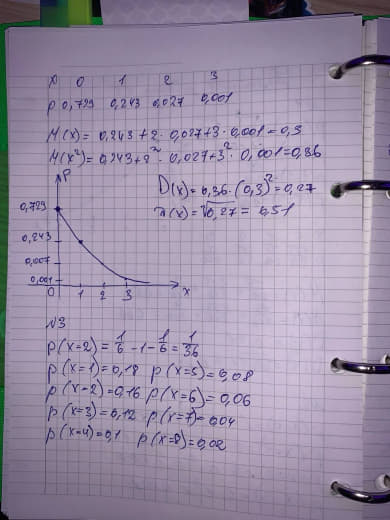 X 0 1 2 3
p 0,729 0,243 0,027 0,001
M(x) = 0,243 + 2 · 0,027 + 3 · 0,001 = 0,3
M(x²) = 0,243 + 2² · 0,027 + 3² · 0,001 = 0,36
P
D(x) = 0,36 · (0,3)² = 0,27
(x) = √0,27 = 0,51
0,729
0,243
0,007
0,001
0 1 2 3 x
№3
p(x=2) = 1/6 - 1 - 1/6 = 1/36
p(x=1) = 0,18 p(x=5) = 0,08
p(x=2) = 0,16 p(x=6) = 0,06
p(x=3) = 0,12 p(x=7) = 0,04
p(x=4) = 0,1 p(x=8) = 0,02